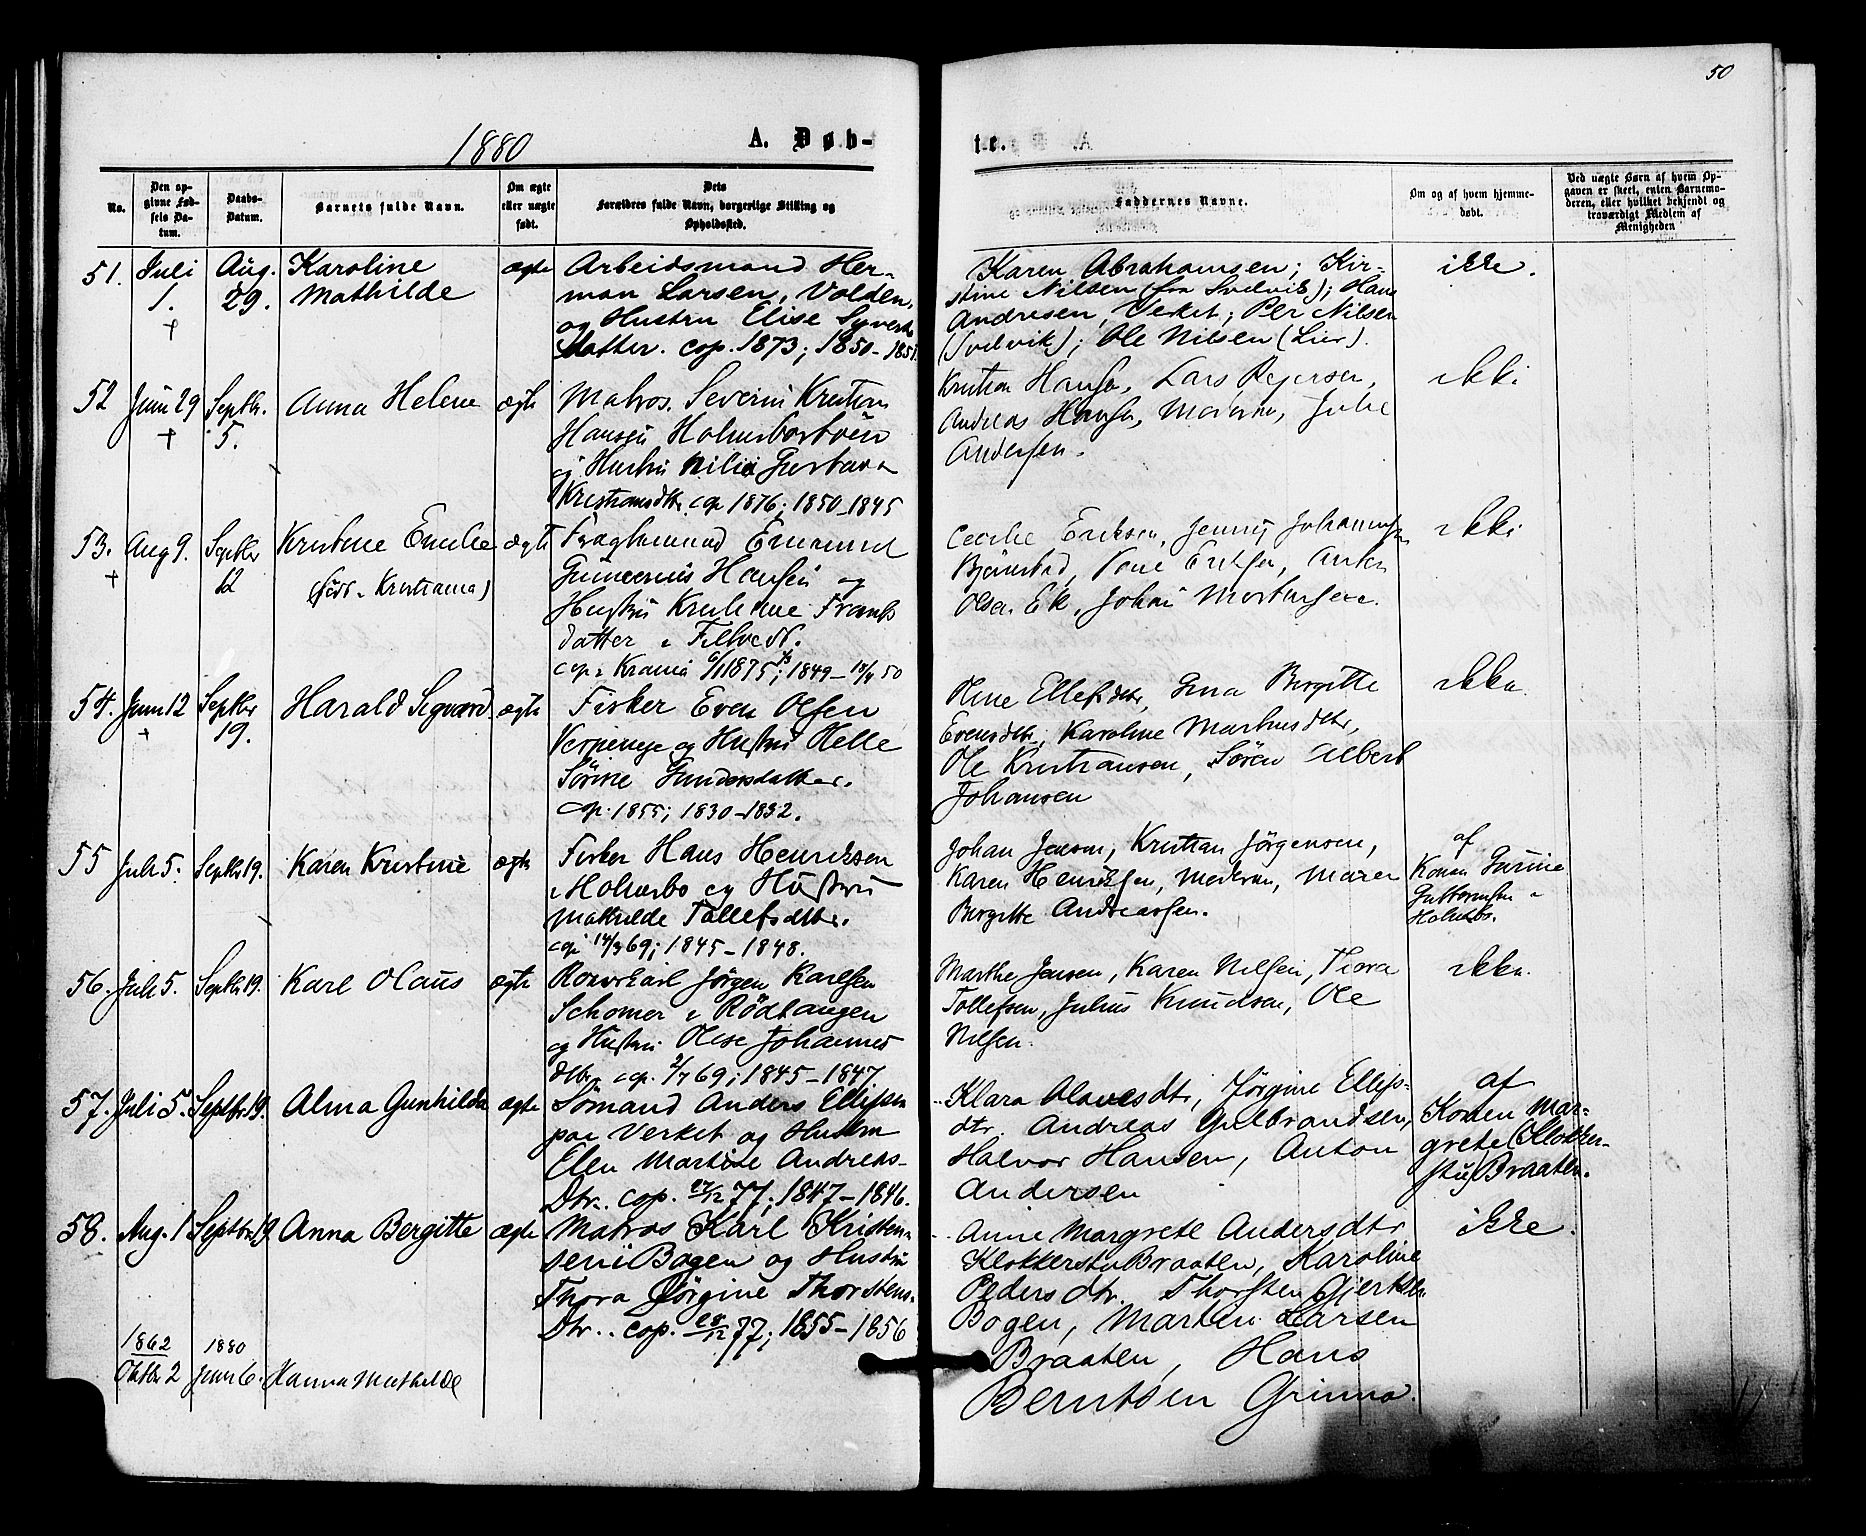 50
1880
A. Døb-
te.
No.
Den op-
givne Fød-
sels Da-
tum.
Daabs-
Datum.
Barnets fulde Navn.
Om ægte
eller uægte
født.
Dets
Forældres fulde Navn, borgerlige Stilling og
Opholdssted.
Faddernes Navne.
Om og af hvem hjemme-
døbt.
Ved uægte Børn af hvem Op-
gaven er skeet, enten Barnemo-
deren, eller hvilket bekjendt og
troværdigt Medlem af
Menigheden
51.
Juli
1.
+
Aug.
29.
Karoline
Mathilde
ægte
Arbeidsmand Her-
man Larsen, Volden,
og Hustru Elise Syverts-
datter. cop. 1873; 1850-1851
Karen Abrahamsen; Kir-
stine Nilsen (fra Svelvik); Hans
Andresen, Verket; Per Nilsen
(Svelvik); Ole Nilsen (Lier).
ikke.
52
Juni 29
+
Septbr.
5.
Anna Helene
ægte
Matros. Severin Kristian
Hansen Holmsbostøen
og Hustru Gustava
Kristiansdtr. cop 1876; 1850-1845
Kristian Hansen, Lars Rejersen,
Andreas Hansen, Moderen, Julie
Andersen.
ikke
53.
+
Aug 9.
Septbr
12
Kristine Emilie
(født i Kristiania)
ægte
Emanuel
Hansen og
Hustru Frants
datter i Filtvedt.
cop i Krania 6/1 1875; 1849 - 18/4 50
Cecilie Eriksen, Jenny Johannesen
Bjørnstad, Eriksen, Anton
Olsen Ek, Johan Mortensen.
ikke
54.
Juni 12
+
Septbr
19.
Harald Sigvard
ægte
Fisker Even Olsen
Verpenge og Hustru Helle
Sørine Gundersdatter.
cop. 1855; 1830-1832.
Oline Ellefsdtr, Gina Bergitte
Evensdtr, Karoline Martinsdtr,
Ole Kristiansen, Søren Albert
Johansen
ikke.
55
Juli 5.
Septbr 19.
Karen Kristine
ægte
Fisker Hans Henriksen
i Holmsbo og Hustru
Mathilde Tollefsdtr.
cop 14/7 69; 1845-1848.
Johan Jensen, Kristian Jørgensen,
Karen Henriksen, Moderen, Maren
Bergitte Andreassen.
af
Konen Gurine
Guttormsen i
Holmsbo.
56.
Juli 5.
Septbr 19.
Karl Olaus
ægte
Rorskarl Jørgen Karlsen
Schomer i Rödtangen
og Hustru Olise Johannes
dtr. cop. 2/7 69; 1845-1847
Marthe Jensen, Karen Nilsen, Thora
Tollefsen, Julius Knudsen, Ole
Nilsen.
ikke.
57.
Juli 5.
Septbr. 19.
Alma Gunhilda
ægte
Sømand Anders Ellefsen
paa Verket og Hustru
Elen Martine Andreas-
Dtr. cop. 27/12 77; 1847-1846.
Klara Olavesdtr, Jørgine Ellefs-
dtr. Andreas Gulbrandsen,
Halvor Hansen, Anton
Andersen
af
Konen Mar-
grete (Klokker-
stu) Braaten.
58.
Aug. 1
Septbr. 19
Anna Bergitte
ægte
Matros Karl Kristen-
sen Bogen og Hustru
Thora Jørgine Thorstens-
Dtr. cop. 28/12 77; 1855-1856
Anne Margrete Andersdtr
Klokkerstu Braaten, Karoline
Pedersdtr. Thorsten Gjertsen
Bogen, Martin Larsen
Braaten, Hans
Berntsen Grimma.
ikke.
1862
Oktbr 2
1880
Juni 6.
Hanna Mathilde